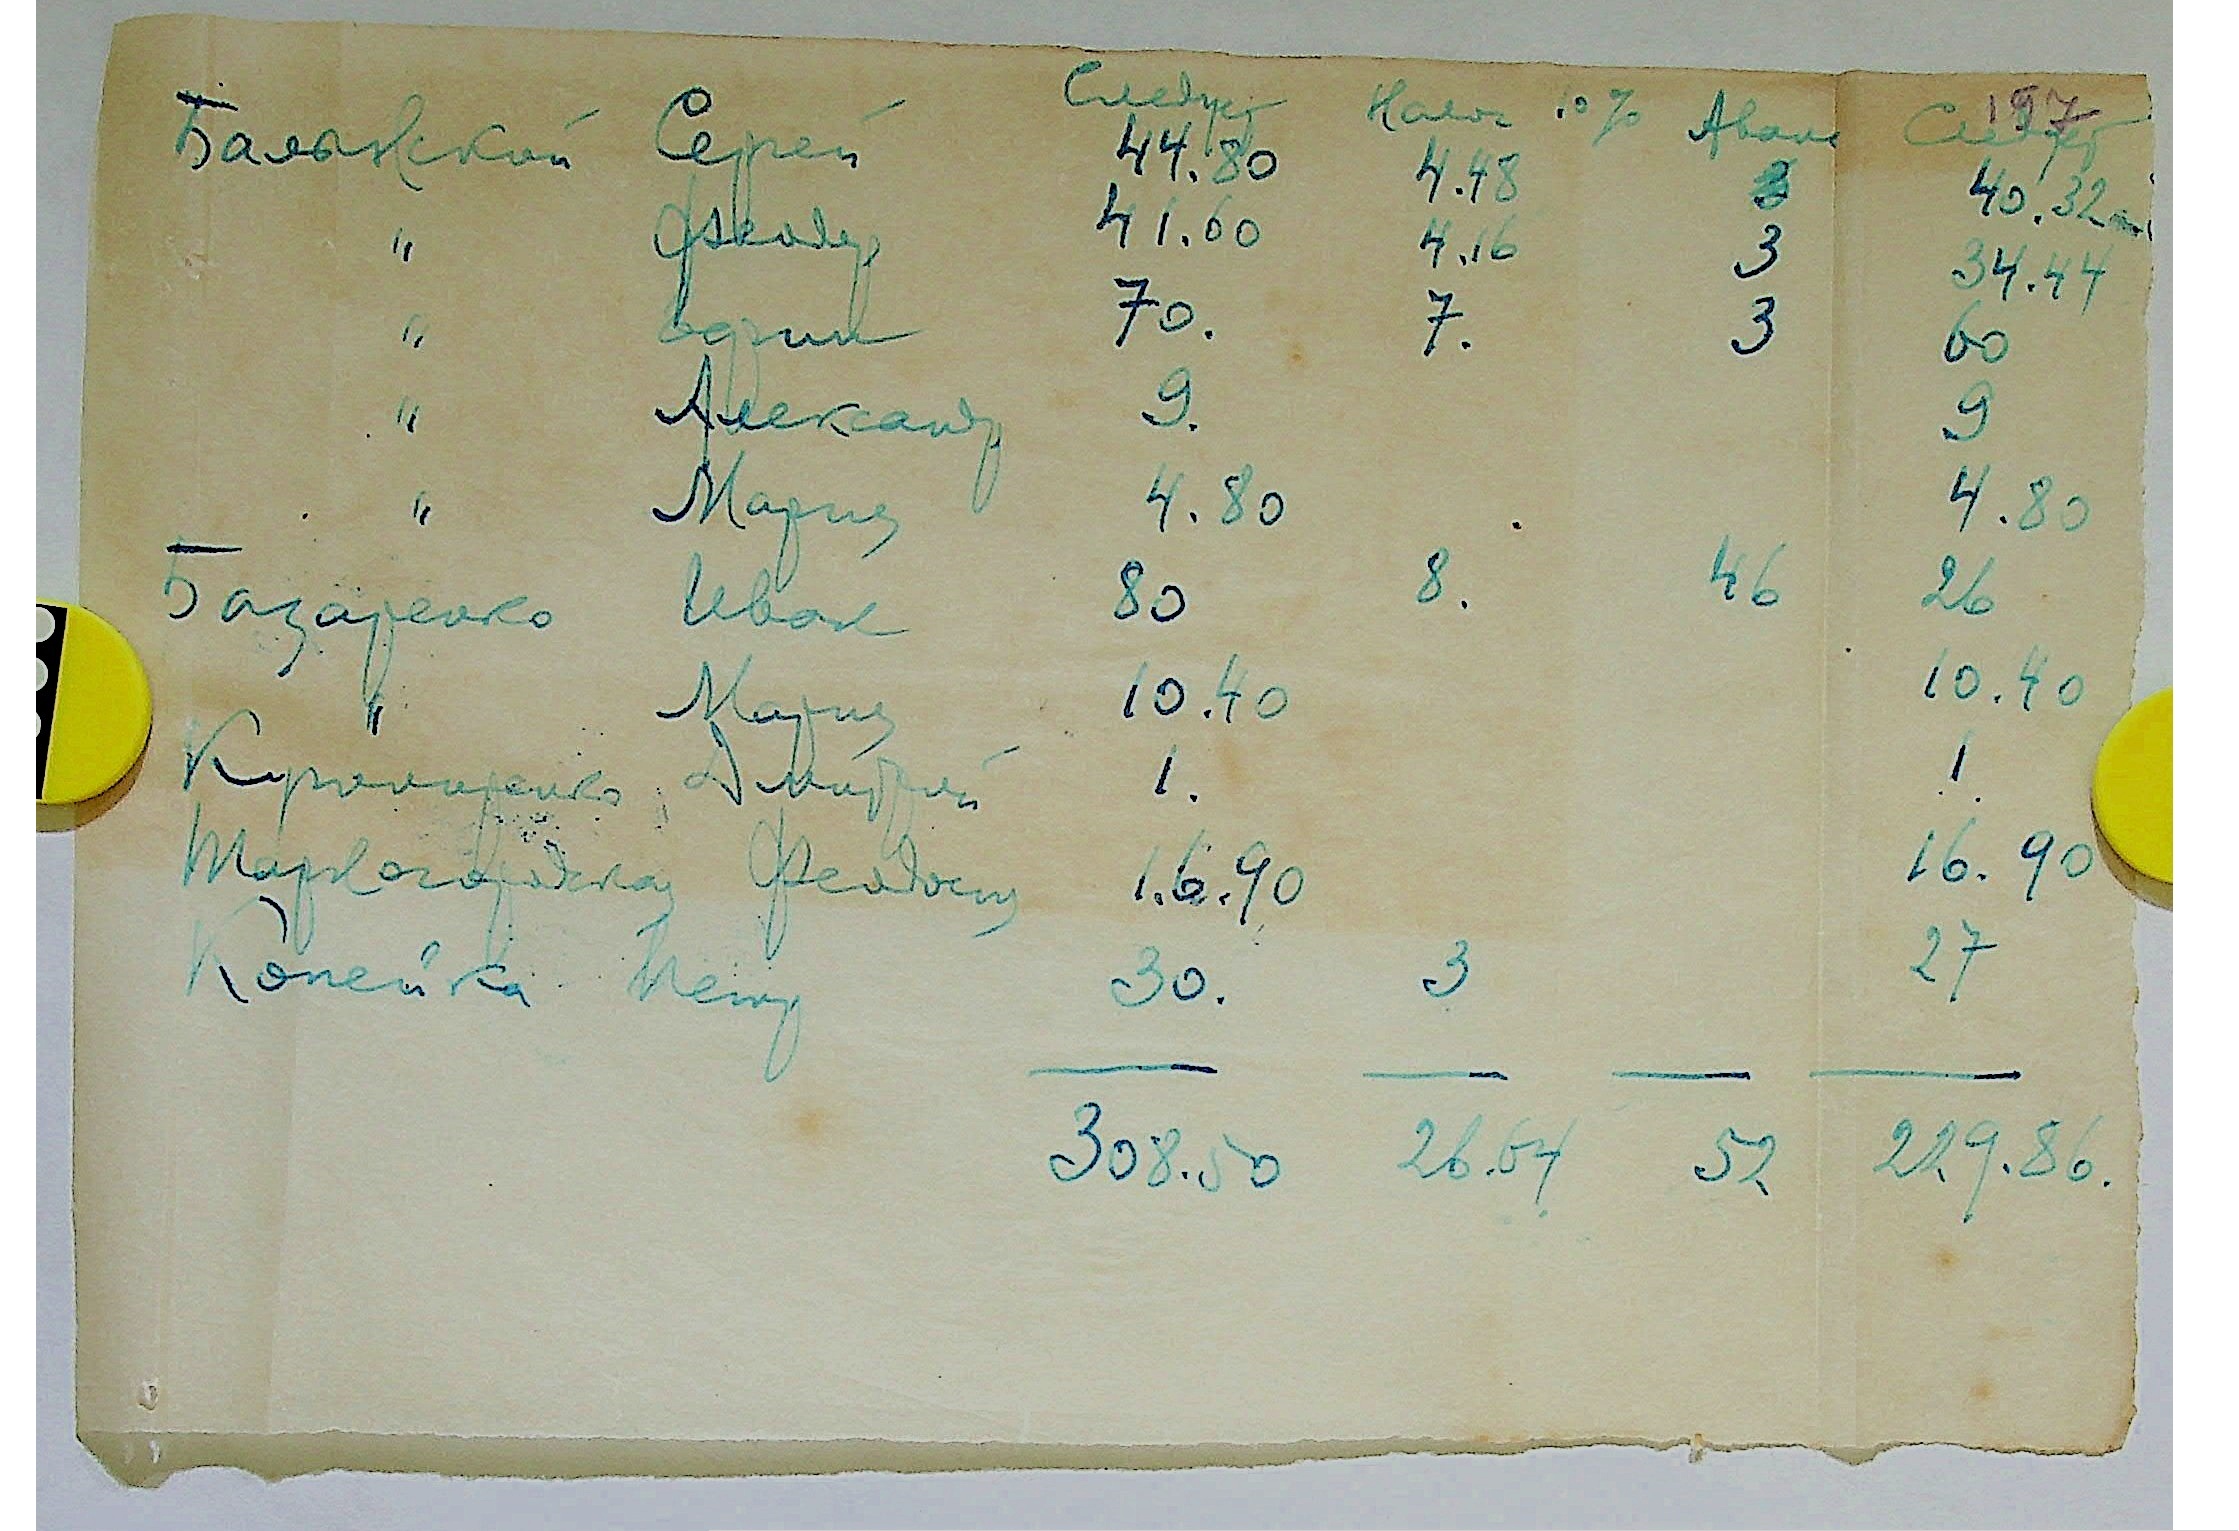 197
Следует Налог 10% Аванс Следует
Балывской Сергей 44.80 4.48 3 40.32
" Феодор 41.60 4.16 3 34.44
" 70. 7. 3 60
" Александр 9. 9
" Мария 4.80 4.80
Базаренко Иван 80 8. 46 26
" Мария 10.40 10.40
Дмитрий 1. 1.
Феодосия 1.6.90 16.90
Копейка Петр 30. 3 27
308.50 26.64 52 229.86.